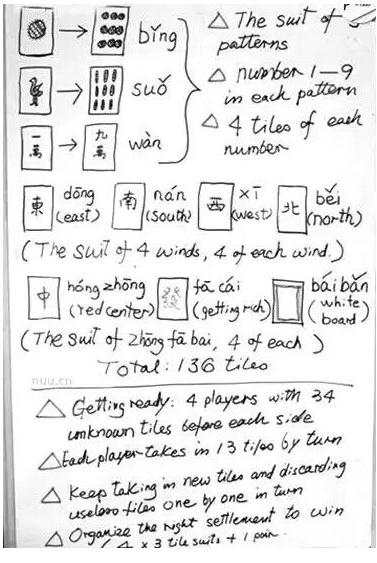 → bǐng
→ suǒ
一萬 → 九萬 wàn
△ The suit of 3
patterns
△ number 1—9
in each pattern
△ 4 tiles of each
number
東 dōng (east) 南 nán (south) 西 xī (west) 北 běi (north)
(The suit of 4 winds, 4 of each wind.)
中 hóng zhōng (red center) 發 fā cái (getting rich) bái bǎn (white board)
(The suit of zhōng fā bai, 4 of each)
Total: 136 tiles
nuu.cn
△ Getting ready: 4 players with 34
unknown tiles before each side
△ Each player takes in 13 tiles by turn
△ Keep taking in new tiles and discarding
useless tiles one by one in turn
△ Organize the right settlement to win
(4 x 3 tile suits + 1 pair